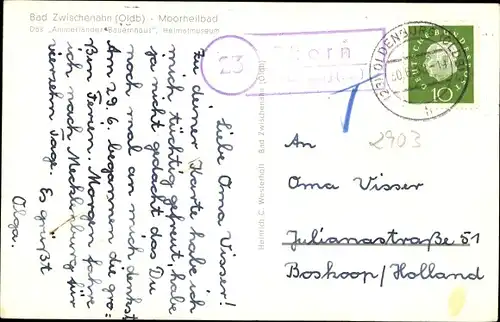 Bad Zwischenahn (Oldb) - Moorheilbad
Das „Ammerländer Bauernhaus", Heimatmuseum
Liebe Oma Visser!
Zu deiner Karte habe ich
mich tüchtig gefreut, habe
ja nicht gedacht das Du
noch mal an mich denkst.
Am 29.6. begannen die gro-
ßen Ferien. Morgen fahre
ich nach Mecklenburg für
vierzehn Tage. Es grüßt
Olga.
Heinrich C. Westerholt Bad Zwischenahn (Oldb)
23
(23) OLDENBURG
10
2903
An
Oma Visser
Julianastraße 51
Boskoop/Holland